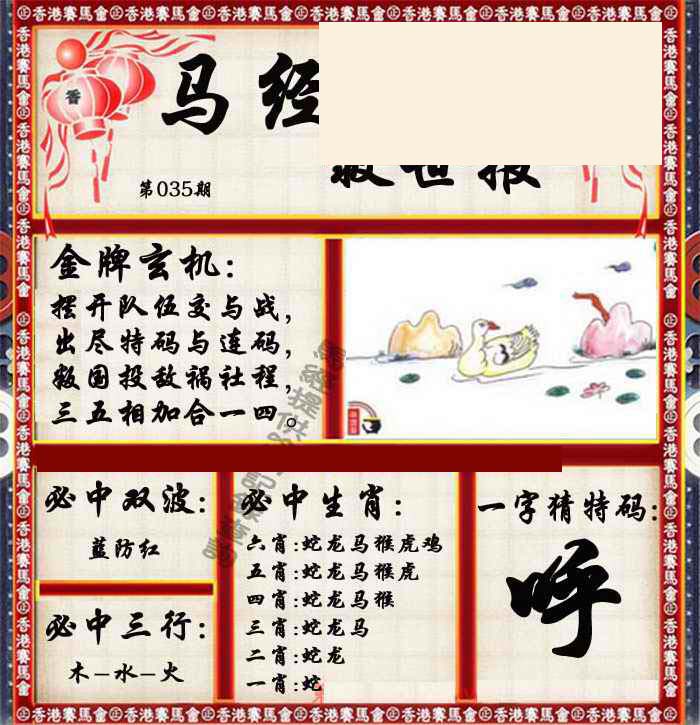 香港賽馬會
香
马经
救世报
第035期
金牌玄机:
摆开队伍交与战,
出尽特码与连码,
叛国投敌祸社程,
三五相加合一四。
必中双波:
蓝防红
必中三行:
木-水-火
必中生肖:
六肖:蛇龙马猴虎鸡
五肖:蛇龙马猴虎
四肖:蛇龙马猴
三肖:蛇龙马
二肖:蛇龙
一肖:蛇
一字猜特码:
呼